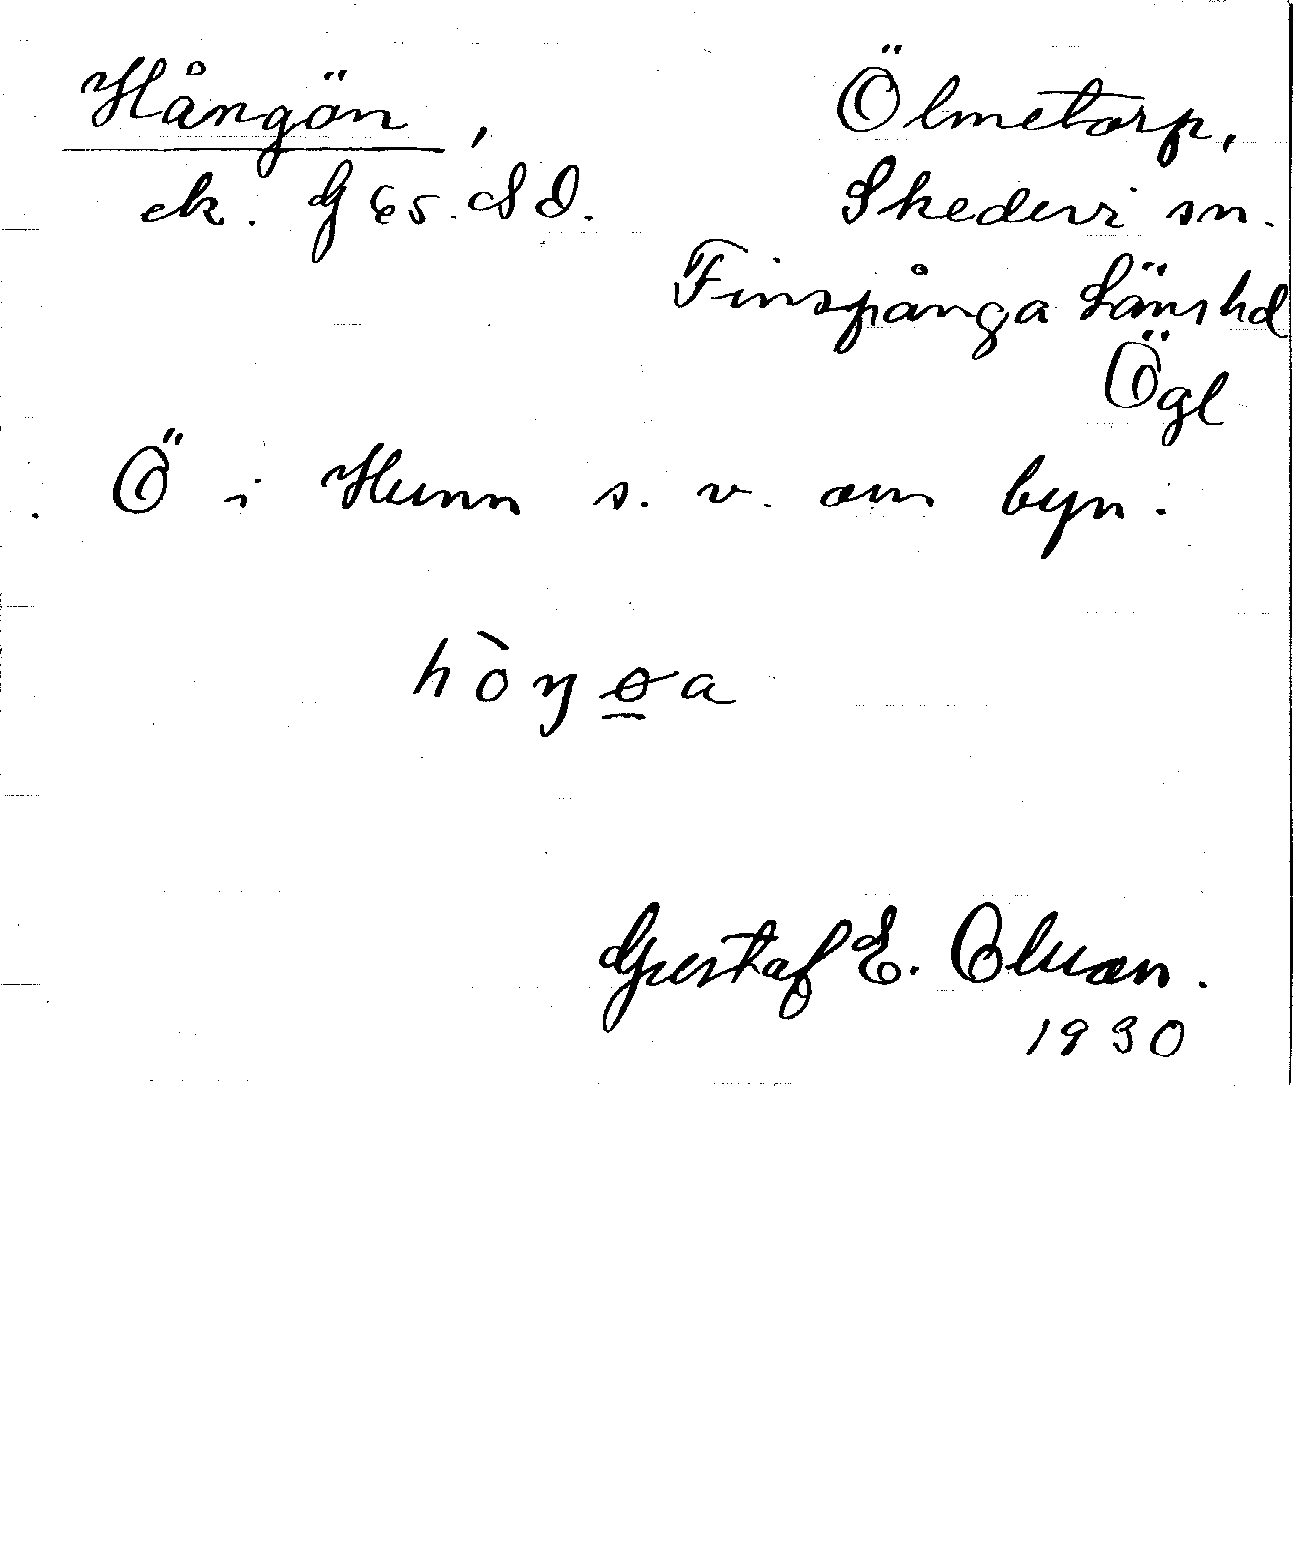 Hångön,
ek. G 65. S Ö.
Ölmetorp,
Skedevi sn.
Finspånga Länshd
Ögl
Ö i Hunn s. v. om byn.
hòŋøa
Gustaf E. Olsson.
1930